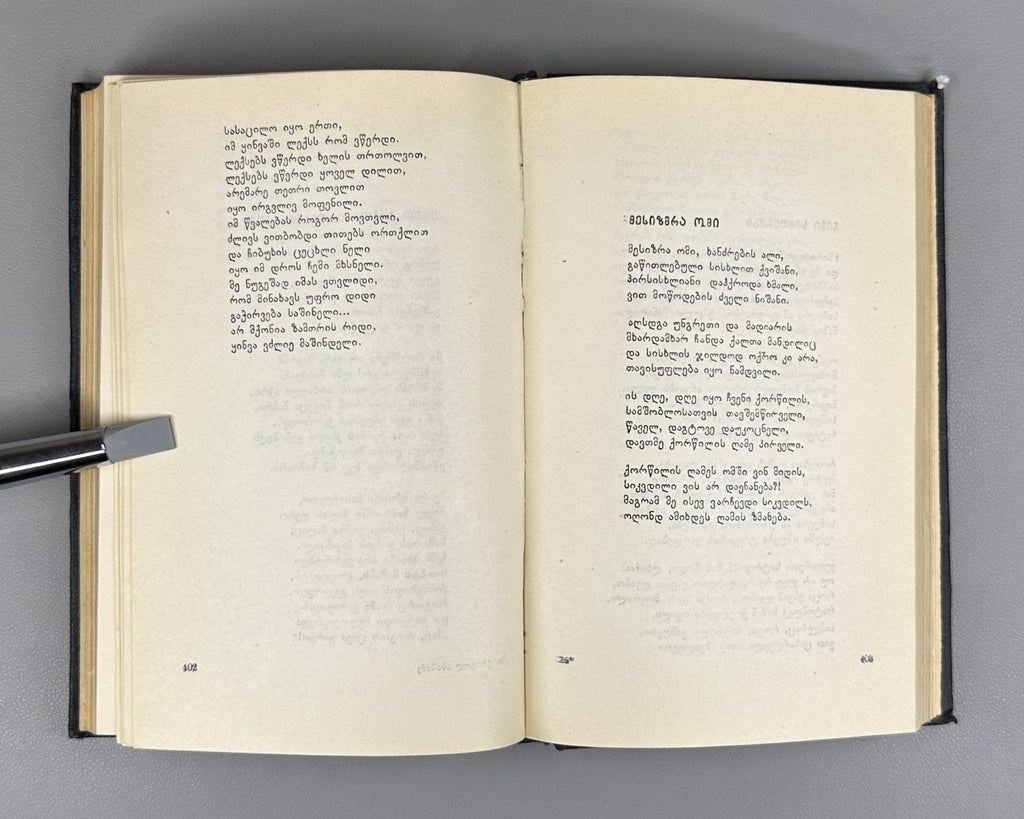 სასაცილო იყო ერთი,
იმ ყინვაში ლექსს რომ ვწერდი.
ლექსებს ვწერდი ხელის თრთოლვით,
ლექსებს ვწერდი ყოველ დილით,
არემარე თეთრი თოვლით
იყო ირგვლივ მოფენილი.
იმ წვალებას როგორ მოვთვლი,
ძლივს ვითბობდი თითებს ორთქლით
და ჩიბუხის ცეცხლი ნელი
იყო იმ დროს ჩემი მხსნელი.
მე ნუგეშად იმას ვთვლიდი,
რომ მინახავს უფრო დიდი
გაჭირვება საშინელი...
არ მქონია ზამთრის რიდი,
ყინვა ვძლიე მაშინდელი.
402
მესიზმრა ომი
მესიზრა ომი, ხანძრების ალი,
გაწითლებული სისხლით ქვიშანი,
პირსისხლიანი დაჰქროდა ხმალი,
ვით მოწოდების ძველი ნიშანი.
აღსდგა უნგრეთი და მადიარის
მხარდამხარ ჩანდა ქალთა მანდილიც
და სისხლის ჯილდოდ ოქრო კი არა,
თავისუფლება იყო ნამდვილი.
ის დღე, დღე იყო ჩვენი ქორწილის,
სამშობლოსათვის თავშემწირველი,
წაველ, დაგტოვე დაუკოცნელი,
დავთმე ქორწილის ღამე პირველი.
ქორწილის ღამეს ომში ვინ მიდის,
სიკვდილი ვის არ დაენანება?!
მაგრამ მე ისევ ვარჩევდი სიკვდილს,
ოღონდ ამიხდეს ღამის ზმანება.
26*
403